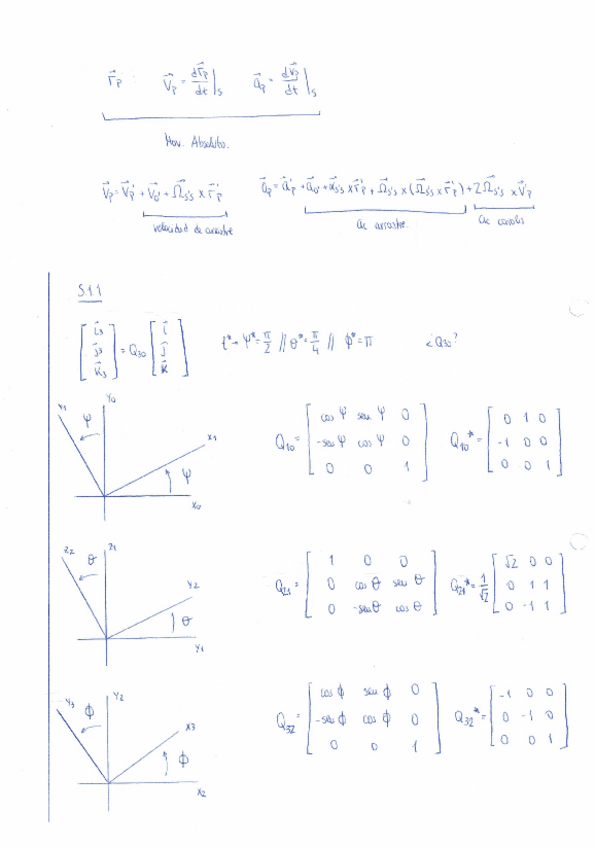 r⃗p : V⃗p = dr⃗p/dt |s a⃗p = dv⃗p/dt |s
Mov. Absoluto.
V⃗p = V⃗p' + V⃗o' + Ω⃗s's × r⃗'p a⃗p = a⃗p' + a⃗o' + α⃗s's × r⃗'p + Ω⃗s's × (Ω⃗s's × r⃗'p) + 2Ω⃗s's × V⃗'p
velocidad de arrastre ac arrastre. ac coriolis
S11
[i⃗3 j⃗3 k⃗3] = Q30 [i⃗ j⃗ k⃗] t* → ψ* = π/2 // θ* = π/4 // ϕ* = π ¿Q30?
Y1 Y0 ψ X1 ψ X0
Q10 = [cos ψ sen ψ 0
-sen ψ cos ψ 0
0 0 1]
Q10* = [0 1 0
-1 0 0
0 0 1]
Z2 Z1 θ Y2 θ Y1
Q21 = [1 0 0
0 cos θ sen θ
0 -sen θ cos θ]
Q21* = 1/√2 [√2 0 0
0 1 1
0 -1 1]
Y3 Y2 ϕ X3 ϕ X2
Q32 = [cos ϕ sen ϕ 0
-sen ϕ cos ϕ 0
0 0 1]
Q32* = [-1 0 0
0 -1 0
0 0 1]